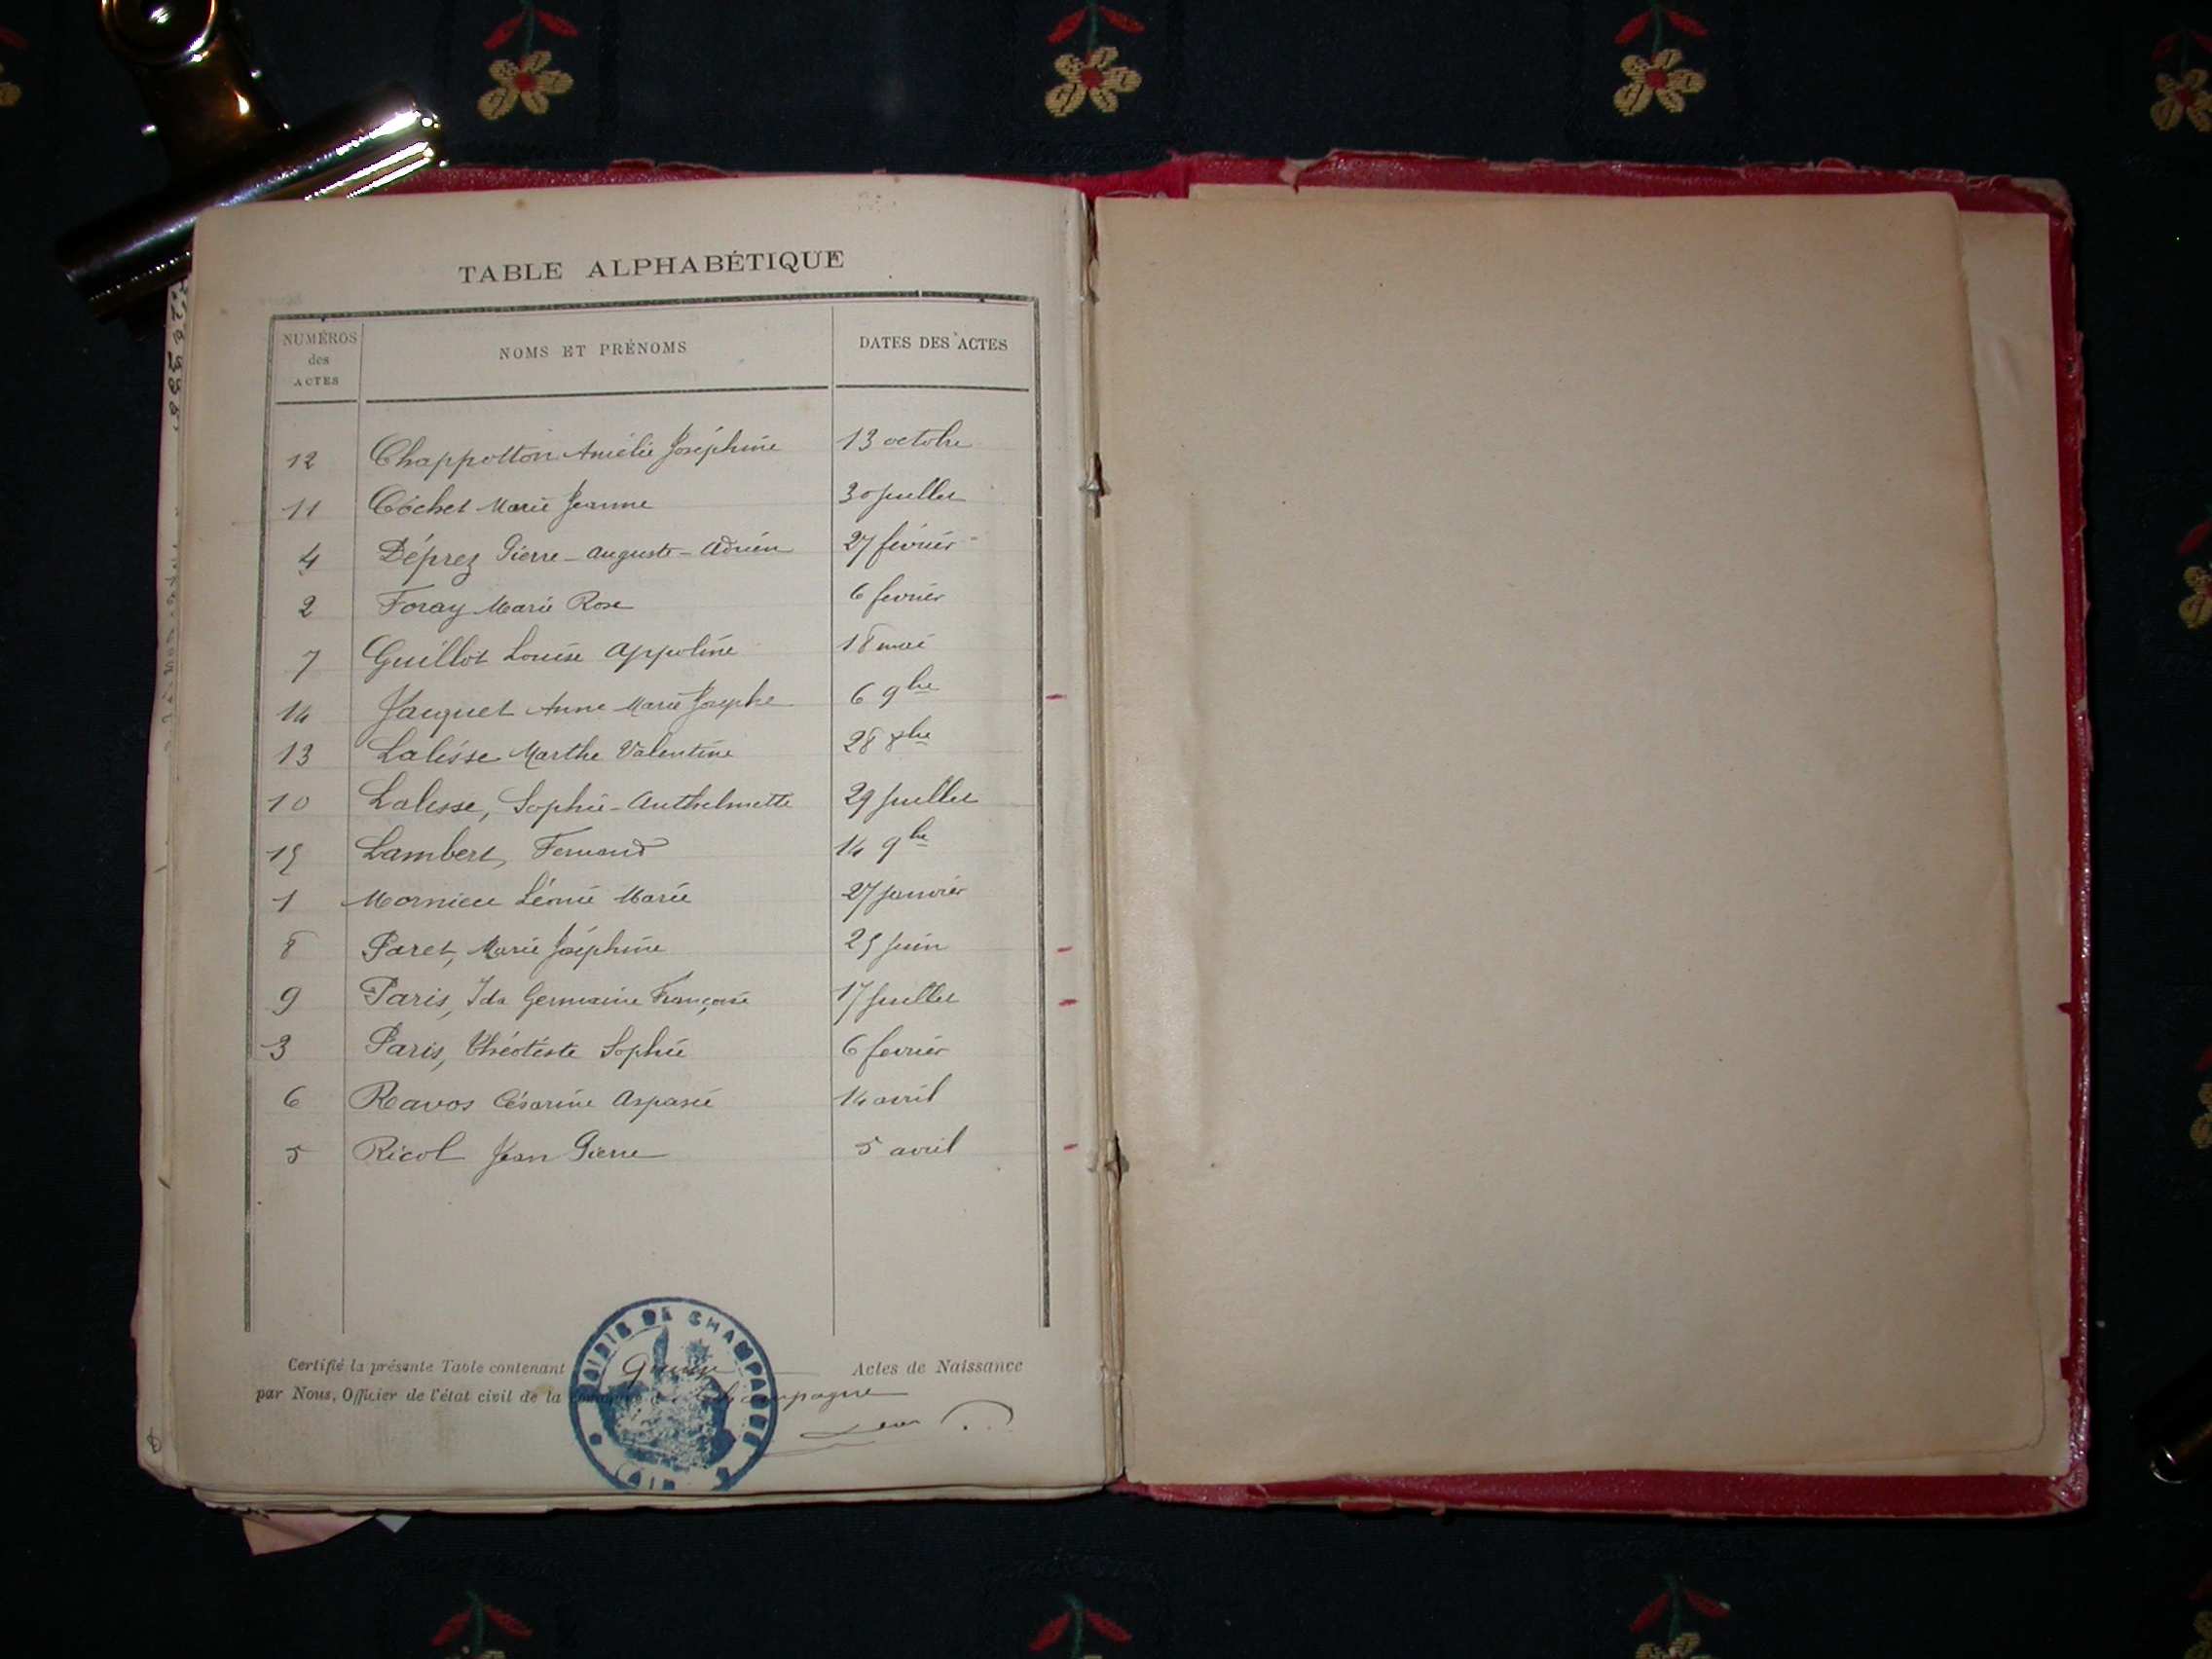 TABLE ALPHABÉTIQUE
NUMÉROS des ACTES NOMS ET PRÉNOMS DATES DES ACTES
12 Chappotton Amélie Joséphine 13 octobre
11 Cochet Marie Jeanne 30 Juillet
4 Déprez Pierre-Auguste-Adrien 27 février
2 Foray Marie Rose 6 fevrier
7 Guillot Louise Appoline 18 mai
14 Jacquet Anne Marie Josephe 6 9bre
13 Lalisse Marthe Valentine 28 8bre
10 Lalisse, Sophie-Anthelmette 29 Juillet
15 Lambert, Fernand 14 9bre
1 Mornieu Léonie Marie 27 Janvier
8 Paret, Marie Joséphine 25 Juin
9 Paris, Ida Germaine Françoise 17 Juillet
3 Paris, Théotiste Sophie 6 fevrier
6 Ravos Césarine Aspasie 14 avril
5 Ricol Jean Pierre 5 avril
Certifié la présente Table contenant Quinze Actes de Naissance
par Nous, Officier de l'état civil de la Commune de Champagne
MAIRIE DE CHAMPAGNE
(AIN)